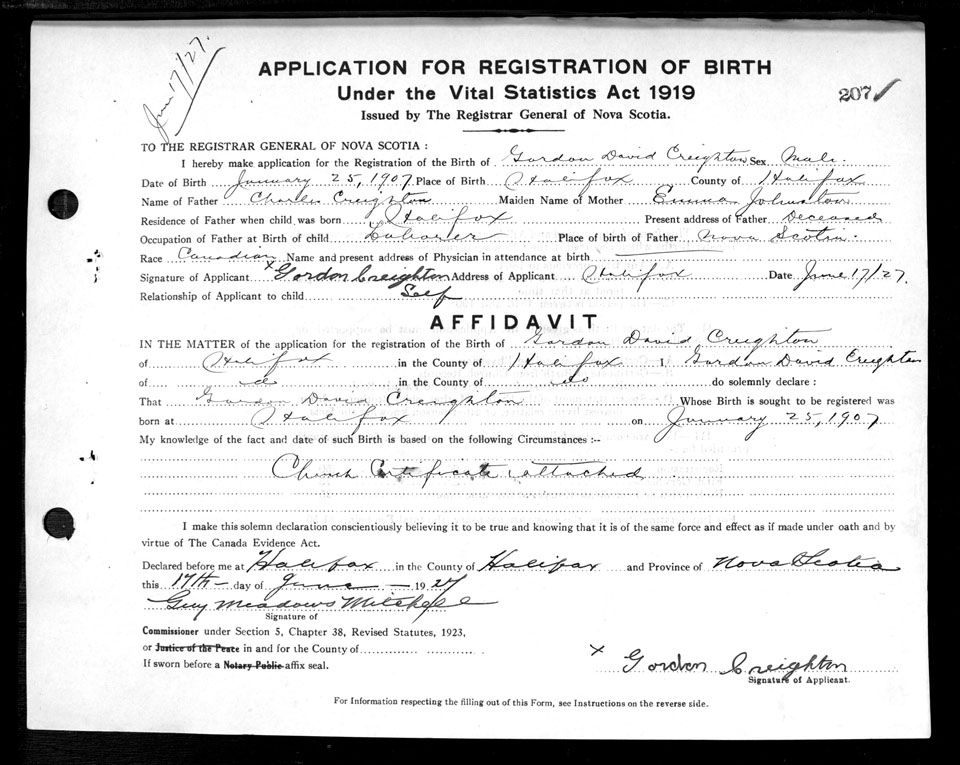 June 17/27.
APPLICATION FOR REGISTRATION OF BIRTH
Under the Vital Statistics Act 1919
207
Issued by The Registrar General of Nova Scotia.
TO THE REGISTRAR GENERAL OF NOVA SCOTIA :
I hereby make application for the Registration of the Birth of Gordon David Creighton Sex Male.
Date of Birth January 25, 1907. Place of Birth Halifax County of Halifax
Name of Father Charles Creighton Maiden Name of Mother Emma Johnston
Residence of Father when child was born Halifax Present address of Father Deceased
Occupation of Father at Birth of child Laborer Place of birth of Father Nova Scotia.
Race Canadian Name and present address of Physician in attendance at birth
Signature of Applicant x Gordon Creighton Address of Applicant Halifax Date June 17/27.
Relationship of Applicant to child Self
AFFIDAVIT
IN THE MATTER of the application for the registration of the Birth of Gordon David Creighton
of Halifax in the County of Halifax I Gordon David Creighton
of do in the County of do do solemnly declare :
That Gordon David Creighton Whose Birth is sought to be registered was
born at Halifax on January 25, 1907
My knowledge of the fact and date of such Birth is based on the following Circumstances :--
Church Certificate attached
I make this solemn declaration conscientiously believing it to be true and knowing that it is of the same force and effect as if made under oath and by
virtue of The Canada Evidence Act.
Declared before me at Halifax in the County of Halifax and Province of Nova Scotia
this 17th day of June 1927
Guy Meadows Mitchell
Signature of
Commissioner under Section 5, Chapter 38, Revised Statutes, 1923,
or Justice of the Peace in and for the County of
If sworn before a Notary Public affix seal.
x Gordon Creighton
Signature of Applicant.
For Information respecting the filling out of this Form, see Instructions on the reverse side.